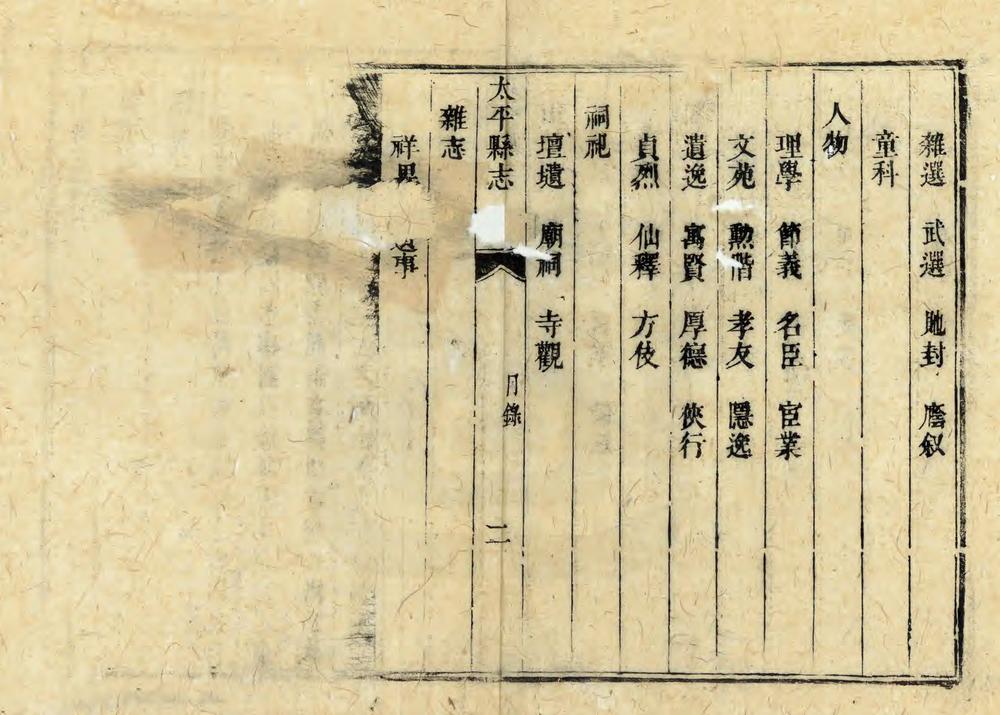 雜選 武選 貤封 廕叙
童科
人物
理學 節義 名臣 宦業
文苑 勲階 孝友 隱逸
遺逸 寓賢 厚德 俠行
貞烈 仙釋 方伎
祠祀
壇壝 廟祠 寺觀
太平縣志 目錄 二
雜志
祥異 事